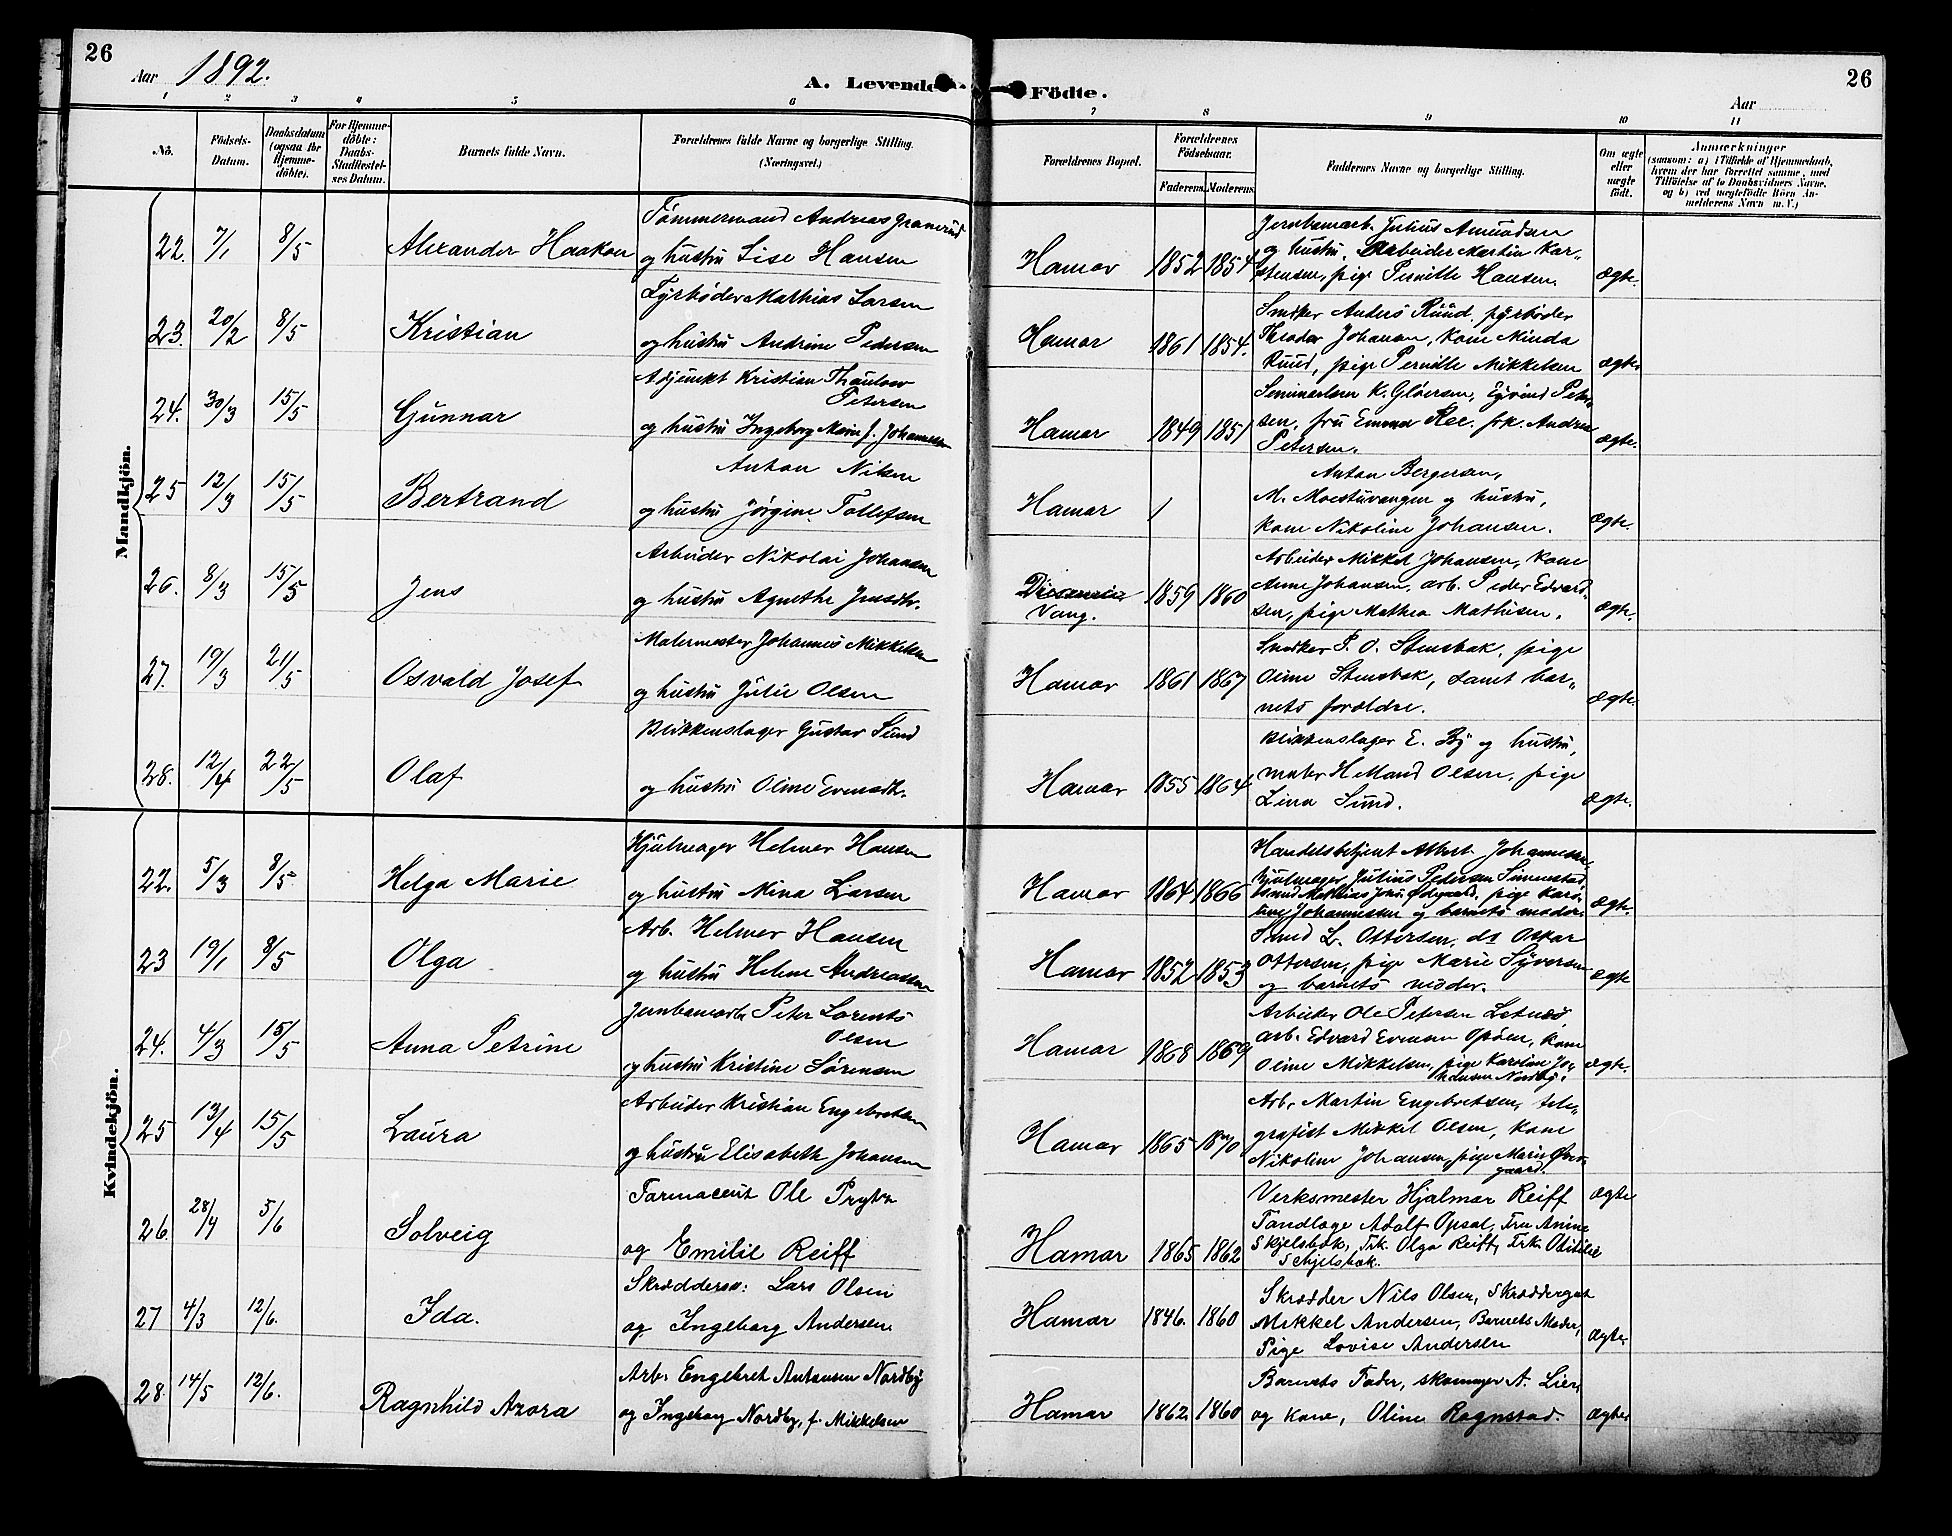 26
Aar 1892.
A. Levende Födte.
26
Aar
1 2 3 4 5 6 7 8 9 10 11
Nö.
Födsels-Datum.
Daabsdatum (ogsaa for Hjemmedöbte).
For Hjemmedöbte: Daabs-Stadfæstelses Datum.
Barnets fulde Navn.
Forældrenes fulde Navne og borgerlige Stilling. (Næringsvei.)
Forældrenes Bopæl.
Forældrenes Födselsaar.
Faderens. Moderens.
Faddernes Navne og borgerlige Stilling.
Om ægte eller uægte födt.
Anmærkninger
(saasom: a) i Tilfælde af Hjemmedaab, hvem der har forrettet samme, med Tilföielse af to Daabsvidners Navne, og b) ved uægtefödte Börn Anmelderens Navn m. V.)
Mandkjön.
22. 7/1 8/5 Alexander Haakon
Tømmermand Andreas Granerud
og hustru Lise Hansen
Hamar 1852 1854
Jernbanearb. Julius Amundsen
og hustru, Arbeider Martin Kar-
stensen, pige Pernille Hansen.
ægte.
23. 20/2 8/5 Kristian
Fyrbøder Mathias Larsen
og hustru Andrine Pedersen
Hamar 1861 1854.
Snedker Anders Ruud, fyrbøder
Theodor Johansen, kone Minda
Ruud, pige Pernille Mikkelsen
ægte
24. 30/3 15/5 Gunnar
Adjunkt Kristian Thaulow
Petersen
og hustru Ingeborg Marie f. Johannessen
Hamar 1849 1851
K. Gløersen, Eyvind Peter-
sen, fru Emma Ree. frk. Andrea
Petersen.
ægte.
25 12/3 15/5 Bertrand
Anton Nilsen
og hustru Jørgine Tollefsen
Hamar /
Anton Bergersen,
M. Moestuvangen og hustru,
kone Nikoline Johansen.
ægte.
26. 8/3 15/5 Jens
Arbeider Nikolai Johansen
og hustru Agnethe Jensdtr.
Vang. 1859 1860
Arbeider Mikkel Johansen, kone
Anne Johansen, arb. Peder Edvard-
sen, pige Mathea Mathisen.
ægte.
27. 19/3 21/5 Osvald Josef
Malermester Johannes Mikkelsen
og hustru Julie Olsen
Hamar 1861 1867
Snedker P. O. Stensbak, pige
Oline Stensbak, samt bar-
nets forældre.
ægte.
28. 12/4 22/5 Olaf
Blikkenslager Gustav Lund
og hustru Oline Evensdtr.
Hamar 1855 1864
Blikkenslager E. By og hustru,
maler Olsen, pige
Lina Lund.
ægte.
Kvindekjön.
22. 5/3 8/5 Helga Marie
Hjulmager Helmer Hansen
og hustru Mina Larsen
Hamar 1864 1866
Handelsbetjent Albert Johannessen
hjulmager Julius Pedersen Simenstad
smed Mathias Jens. pige Karo-
line Johannessen og barnets moder
ægte.
23 19/1 8/5 Olga
Arb. Helmer Hansen
og hustru Helene Andreassen
Hamar 1852 1853
Smed L. Ottersen, ds Oskar
Ottersen, pige Marie Syversen
og barnets moder.
ægte
24. 4/3 15/5 Anna Petrine
Jernbanearb. Peter Lorents
Olsen
og hustru Kristine Sørensen
Hamar 1868 1869
Arbeider Ole Petersen
arb. Edvard Evensen Opsøen, kone
Oline Mikkelsen, pige Karoline Jo-
hansen Nordby.
ægte.
25 13/4 15/5 Laura
Arbeider Kristian Engebretsen
og hustru Elisabeth Johansen
Hamar 1865 1870
Arb. Martin Engebretsen, tele-
grafist Mikkel Olsen, kone
Nikoline Johansen, pige Marie Øver-
gaard.
ægte
26. 28/4 5/6 Solveig
Farmaceut Ole Prytz
og Emilie Reiff
Hamar 1865 1862
Verksmester Hjalmar Reiff
Tandlæge Adolf Opsal, Fru Anine
Skjelsbæk, Frk. Olga Reiff, Frk. Otilie
Schjelsbæk.
27 4/3 12/6. Ida.
Skræddersv: Lars Olsen
og Ingeborg Andersen
Hamar 1846. 1860
Skrædder Nils Olsen, Skræddergut
Mikkel Andersen, Barnets Moder,
Pige Lovise Andersen
ægte.
28. 14/5 12/6. Ragnhild Azora
Arb. Engebret Antonsen Nordby
og Ingeborg Nordby, f. Mikkelsen
Hamar 1862. 1860
Barnets Fader, skomager A. Lien
og Kone, Oline Rognstad.
ægte